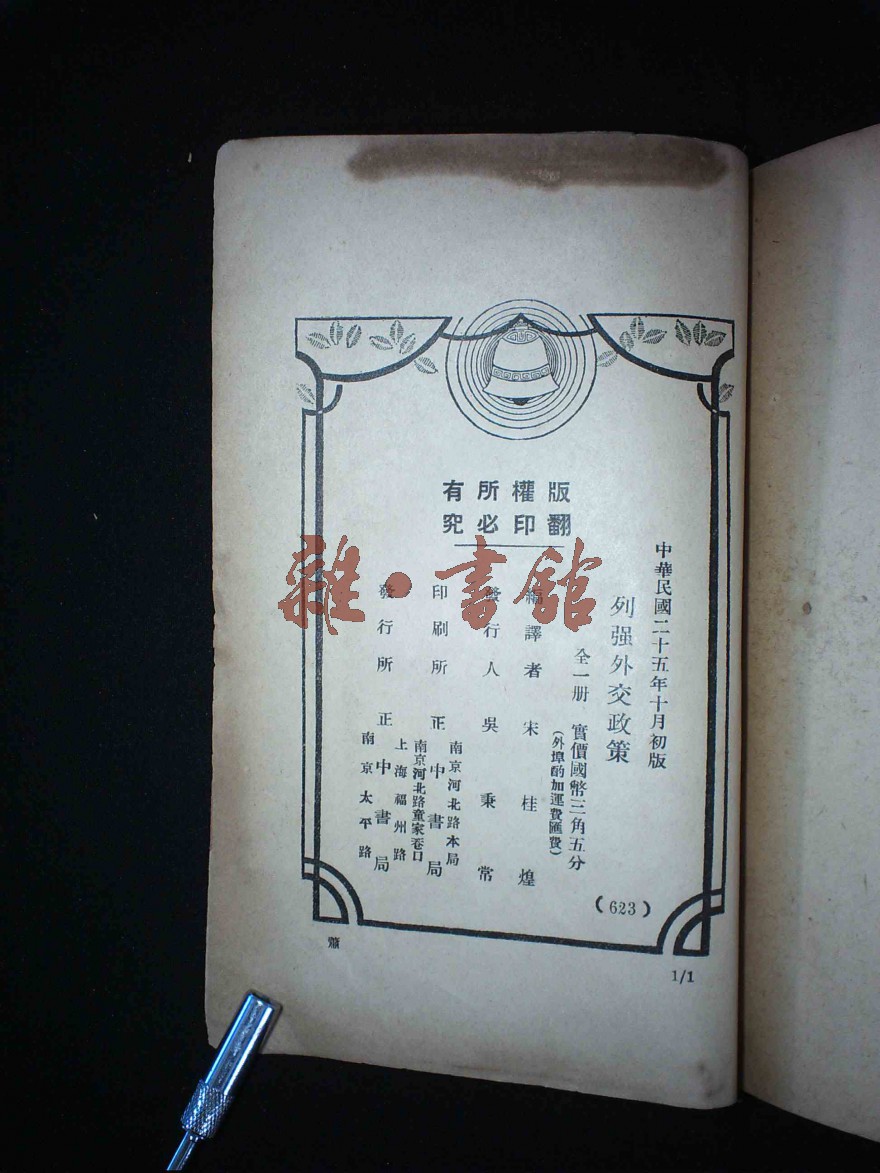 版權所有
翻印必究
中華民國二十五年十月初版
列强外交政策
全一册 實價國幣三角五分
(外埠酌加運費匯費)
編譯者 宋桂煌
發行人 吳秉常
印刷所 正中書局
南京河北路本局
南京河北路童家巷口
發行所 正中書局
上海福州路
南京太平路
(623)
蕭
1/1
雜·書館